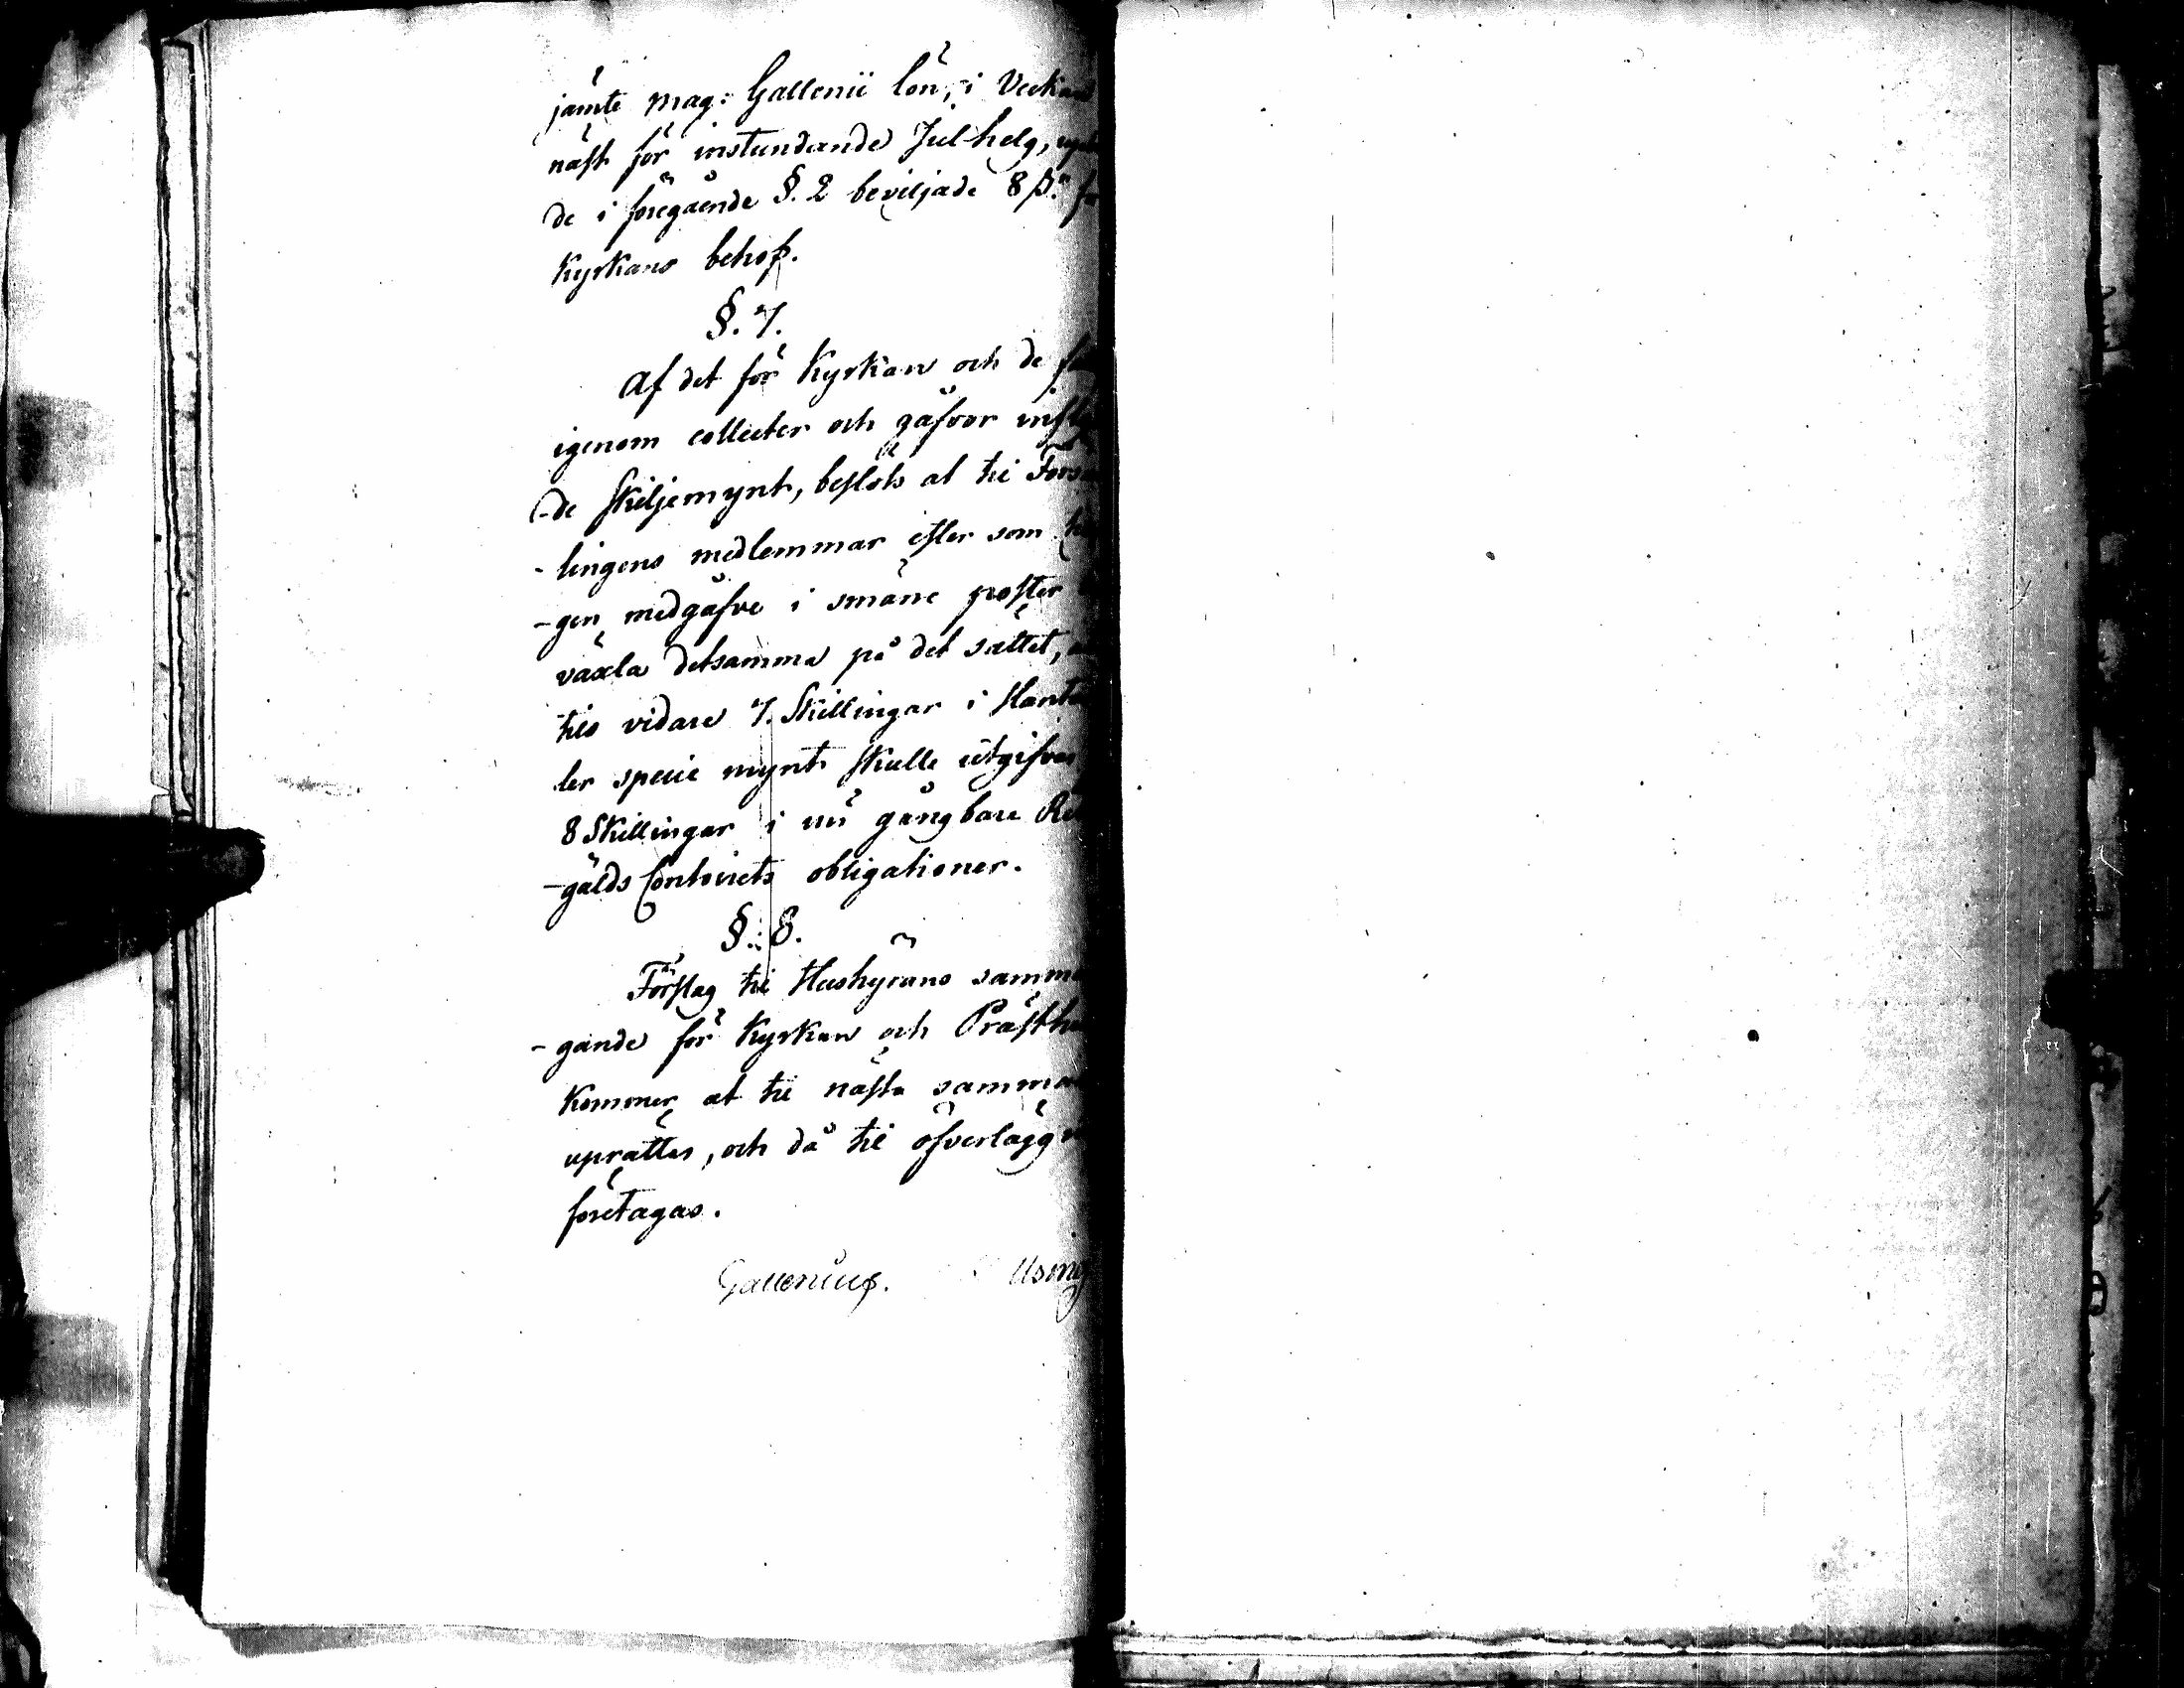 jämte mag: Gallenii lön, i Veckan
näst för instundande Julhelg,
de i föregående §. 2 beviljade 8 ß.
Kyrkans behof.
§. 7.
Af det för Kyrkan och de
igenom collecter och gåfvor infl
-de Skiljemynt, beslöts at til Förs
-lingens medlemmar efter som
-gen medgåfve i smärre poster
växla detsamma på det sättet,
tils vidare 7. Skillingar i
ler specie mynt skulle utgifvas
8 Skillingar i nu gångbare
-gälds Contoirets obligationer.
§. 8.
Förslag til Hushyrans samm
-gande för Kyrkan och Prästh
Kommer at til nästa samman
uprättas, och då til öfverlägg
företagas.
Gallenius. Using